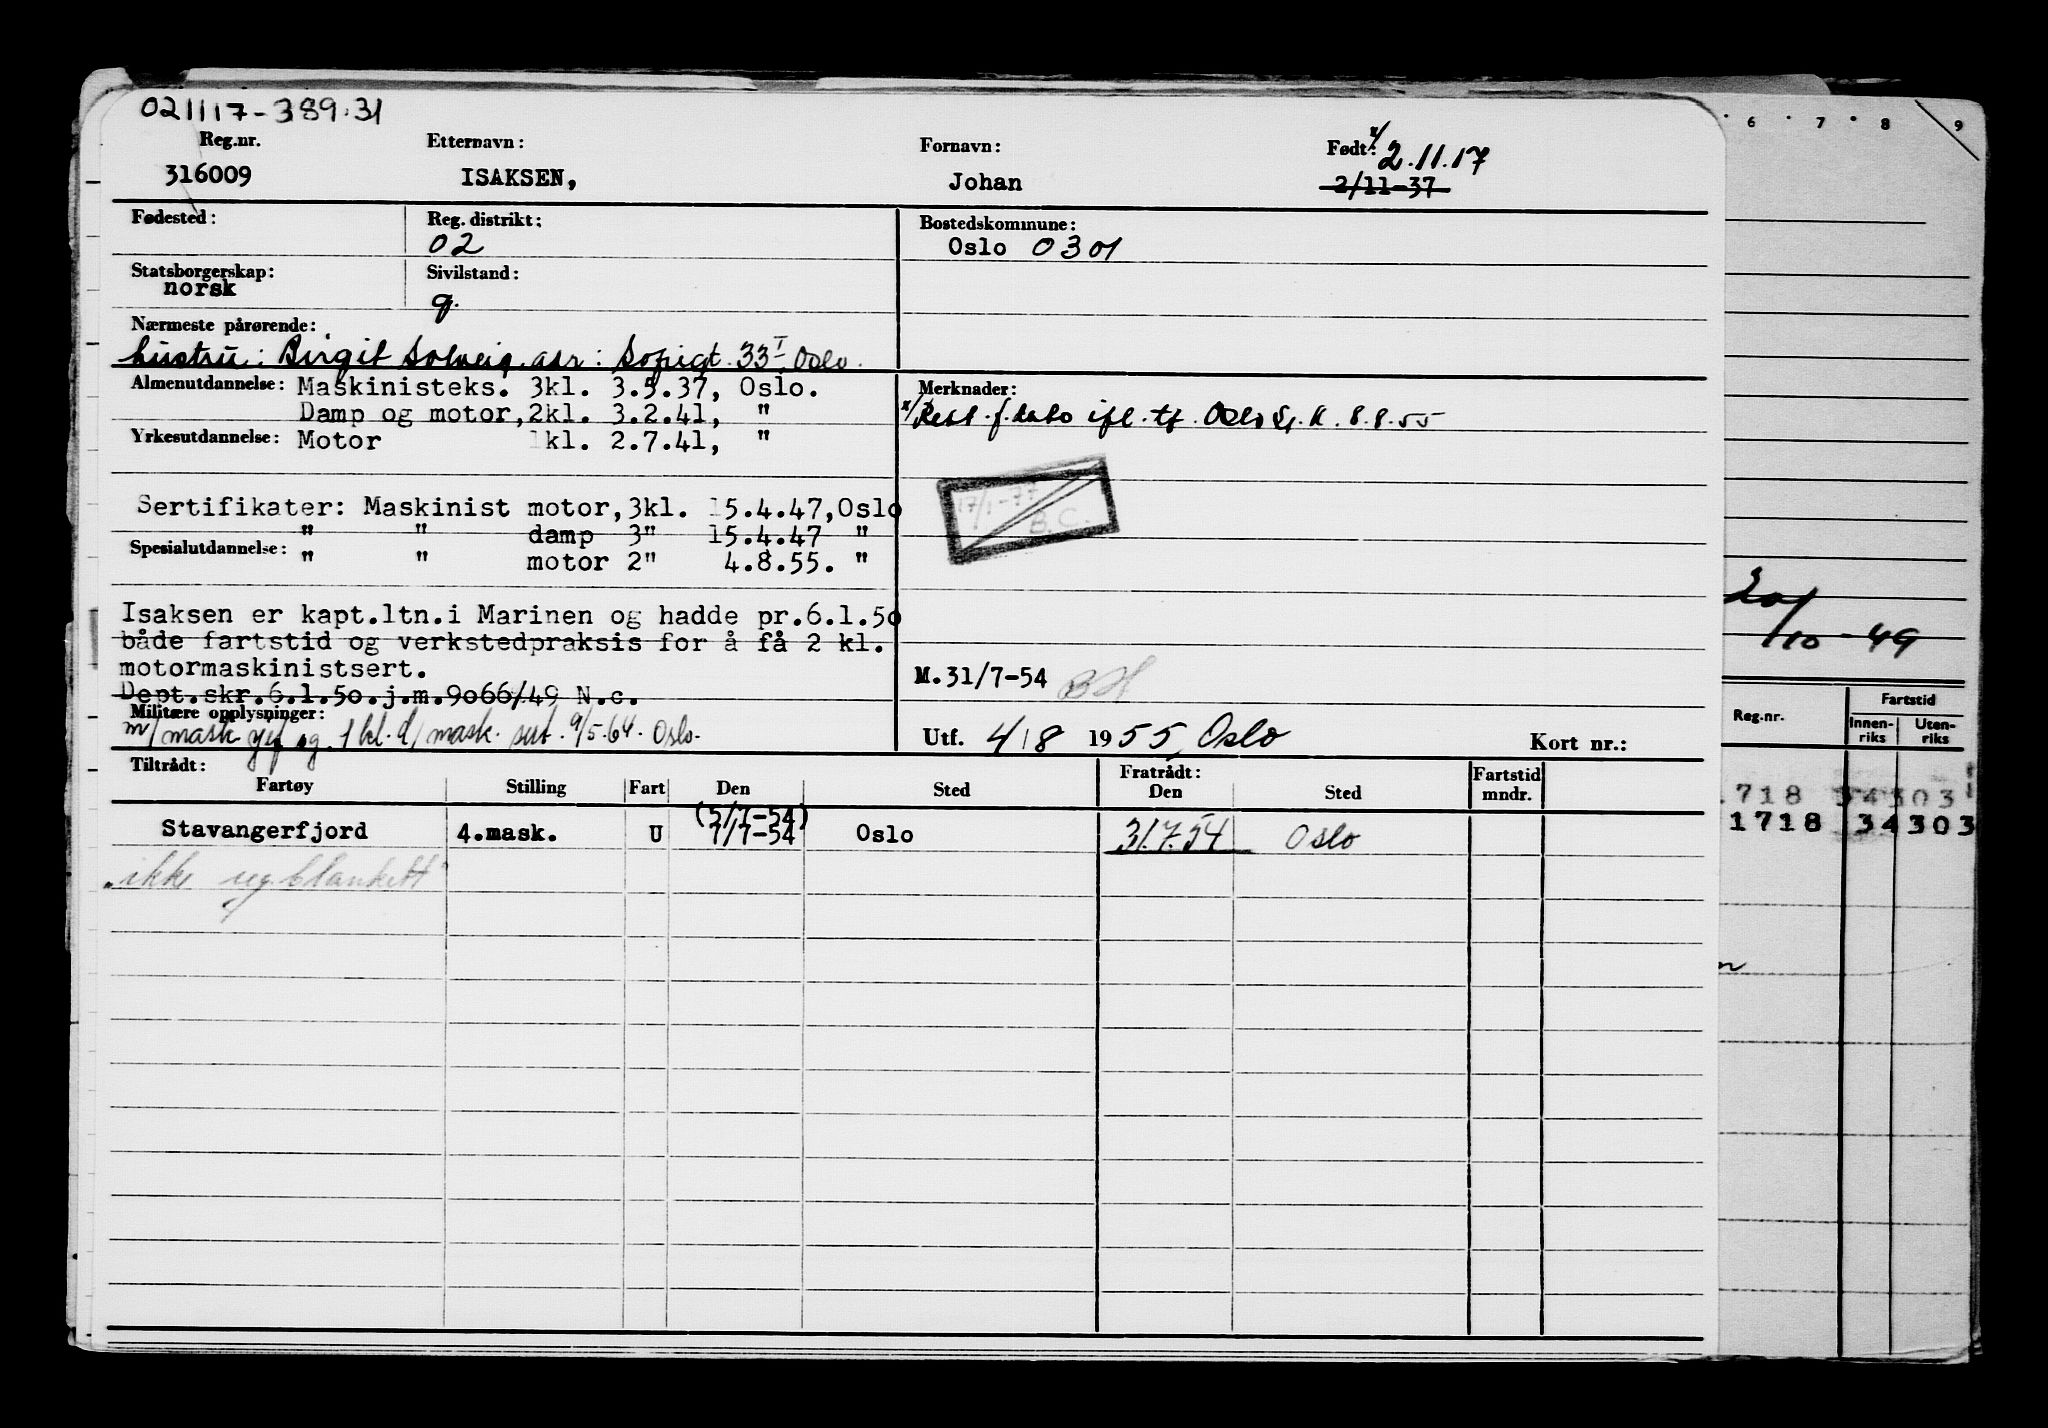 021117-389.31
Reg.nr.
316009
Etternavn:
ISAKSEN,
Fornavn:
Johan
Født:
x/ 2.11.17
2/11-37
Fødested:
Reg. distrikt:
02
Bostedskommune:
Oslo 0301
Statsborgerskap:
norsk
Sivilstand:
g.
Nærmeste pårørende:
hustru: Birgit Solveig adr: Sofiegt. 33 I Oslo.
Almenutdannelse: Maskinisteks. 3kl. 3.5.37, Oslo.
Damp og motor, 2kl. 3.2.41, "
Yrkesutdannelse: Motor 1kl. 2.7.41, "
Merknader:
x/ Rett. f.dato ifl. tf. Oslo 8.8.55
Sertifikater: Maskinist motor, 3kl. 15.4.47, Oslo
" " damp 3" 15.4.47 "
Spesialutdannelse:
" " motor 2" 4.8.55. "
17/1-77
B.C.
Isaksen er kapt.ltn.i Marinen og hadde pr.6.1.50
både fartstid og verkstedpraksis for å få 2 kl.
motormaskinistsert.
Dept.skr.6.1.50.j.m.9066/49 N.c.
M.31/7-54 BH
Militære opplysninger:
m/mask og 1 kl. d/mask. sert. 9/5.64. Oslo.
Utf. 4/8 1955, Oslo
Kort nr.:
Tiltrådt:
Fartøy
Stilling
Fart
Den
Sted
Fratrådt:
Den
Sted
Fartstid
mndr.
(5/7-54)
Stavangerfjord 4.mask. U 7/7-54 Oslo 31.7.54 Oslo
"ikke reg.blankett"
6 7 8 9
20/10-49
Reg.nr.
Fartstid
Innen-
riks
Uten-
riks
.718 34303
1718 34303